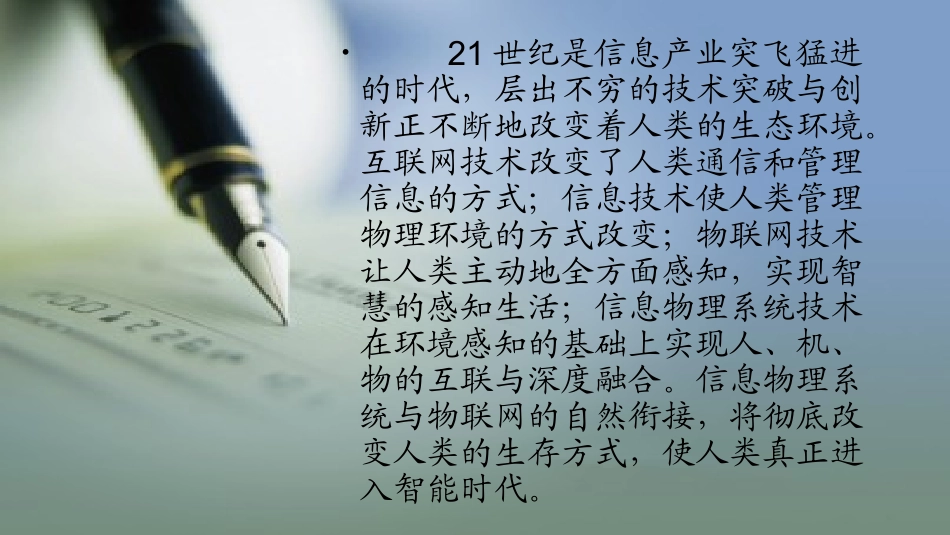 • 21 世纪是信息产业突飞猛进
的时代，层出不穷的技术突破与创
新正不断地改变着人类的生态环境。
互联网技术改变了人类通信和管理
信息的方式；信息技术使人类管理
物理环境的方式改变；物联网技术
让人类主动地全方面感知，实现智
慧的感知生活；信息物理系统技术
在环境感知的基础上实现人、机、
物的互联与深度融合。信息物理系
统与物联网的自然衔接，将彻底改
变人类的生存方式，使人类真正进
入智能时代。